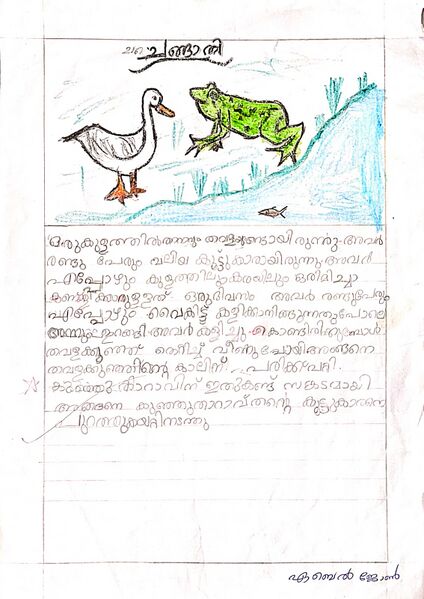 ചങ്ങാതി
ഒരുകുളത്തിൽ താറാവും തവളയുണ്ടായിരുന്നു. അവർ
രണ്ടു പേരും വലിയ കൂട്ടുകാരായിരുന്നു. അവർ
എപ്പോഴും കുളത്തിലുംകരയിലും ഒരുമിച്ചാ
ഒരുദിവസം അവർ രണ്ടുപേരും
എപ്പോഴും വൈകിട്ട് കളിക്കാനിറങ്ങുന്നതുപോലെ
അന്നും ഇറങ്ങി അവർ കളിച്ചു കൊണ്ടിരിക്കുമ്പോൾ
തവളക്കുഞ്ഞ് തെറിച്ച് വീണുപോയി അങ്ങനെ
തവളക്കുഞ്ഞിന്റെ കാലിന് പരിക്ക് പറ്റി.
കുഞ്ഞു താറാവിന് ഇതുകണ്ട് സങ്കടമായി
അങ്ങനെ കുഞ്ഞുതാറാവ് തന്റെ കൂട്ടുകാരനെ
പുറത്തുകയറ്റിനടന്നു
ഏബെൽ ജോൺ